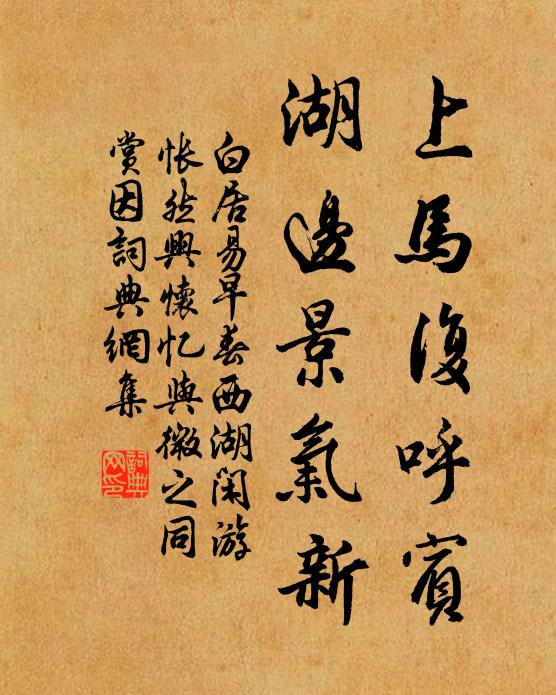 上馬復呼賓
湖邊景氣新
白居易早春西湖闲游
怅然興懷忆與微之同
賞因詞典網集
詞典网印